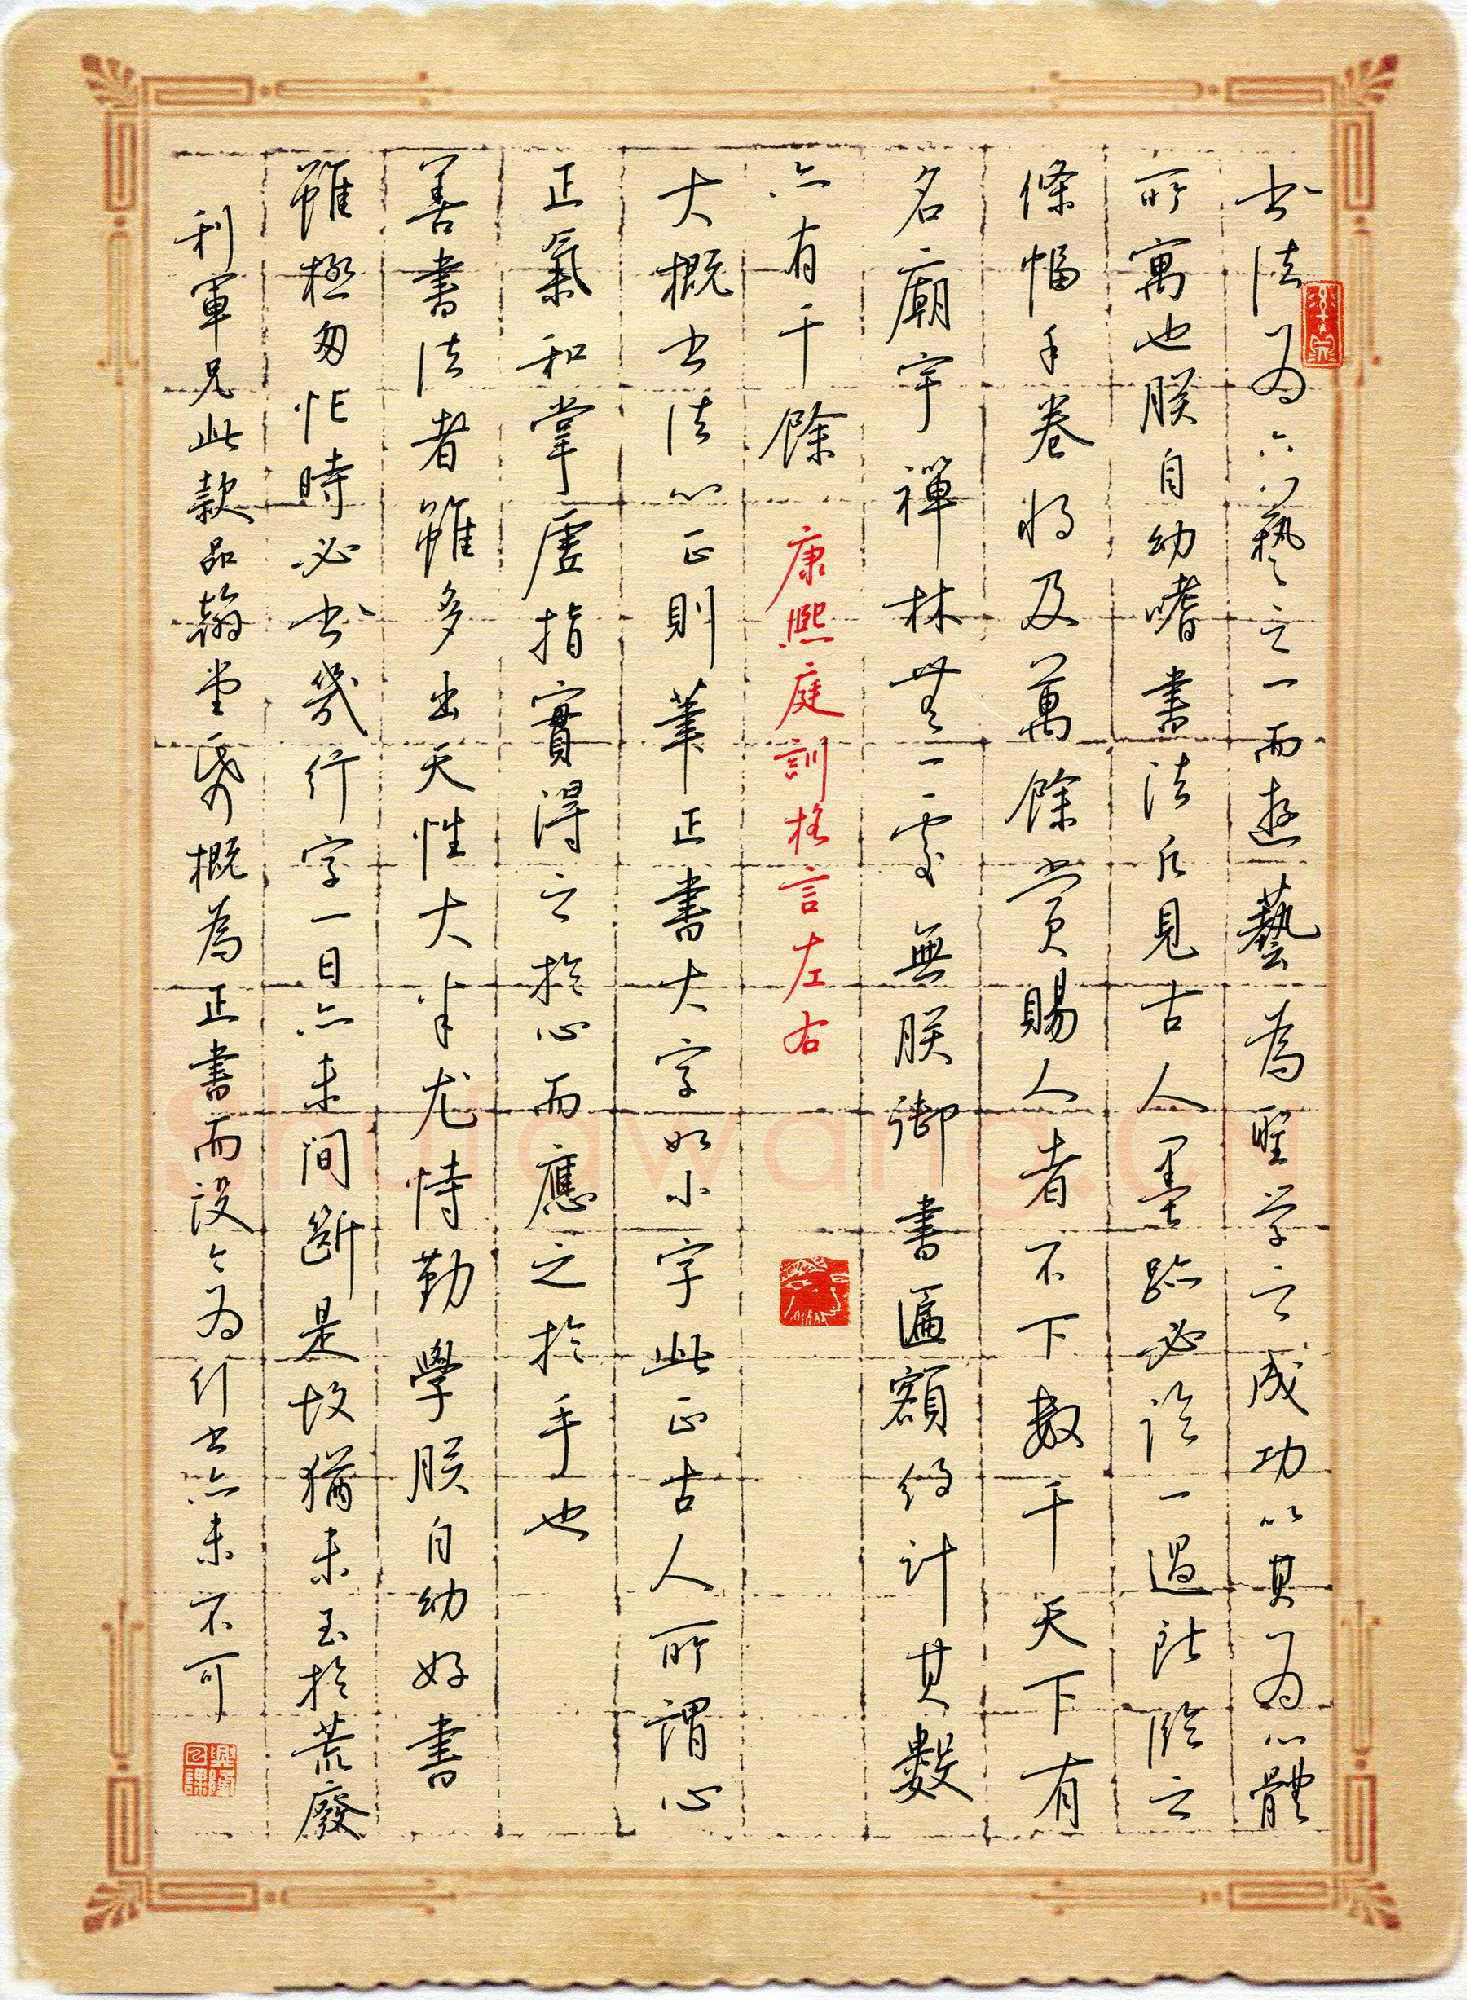 书法为六藝之一而遊藝為聖学之成功以其为心體
所寓也朕自幼嗜書法凡見古人墨跡必临一過所临之
條幅手卷将及萬餘赏賜人者不下数千天下有
名廟宇禪林無一处無朕御書匾額约计其數
亦有千餘 康熙庭訓格言左右
大概书法心正則筆正書大字如小字此正古人所謂心
正氣和掌虛指實得之於心而應之於手也
善書法者雖多出天性大半尤恃勤學朕自幼好書
雖極匆忙時必书幾行字一日亦未间斷是故猶未至於荒廢
利軍兄此款品翰堂紙概為正書而設今为行书亦未不可